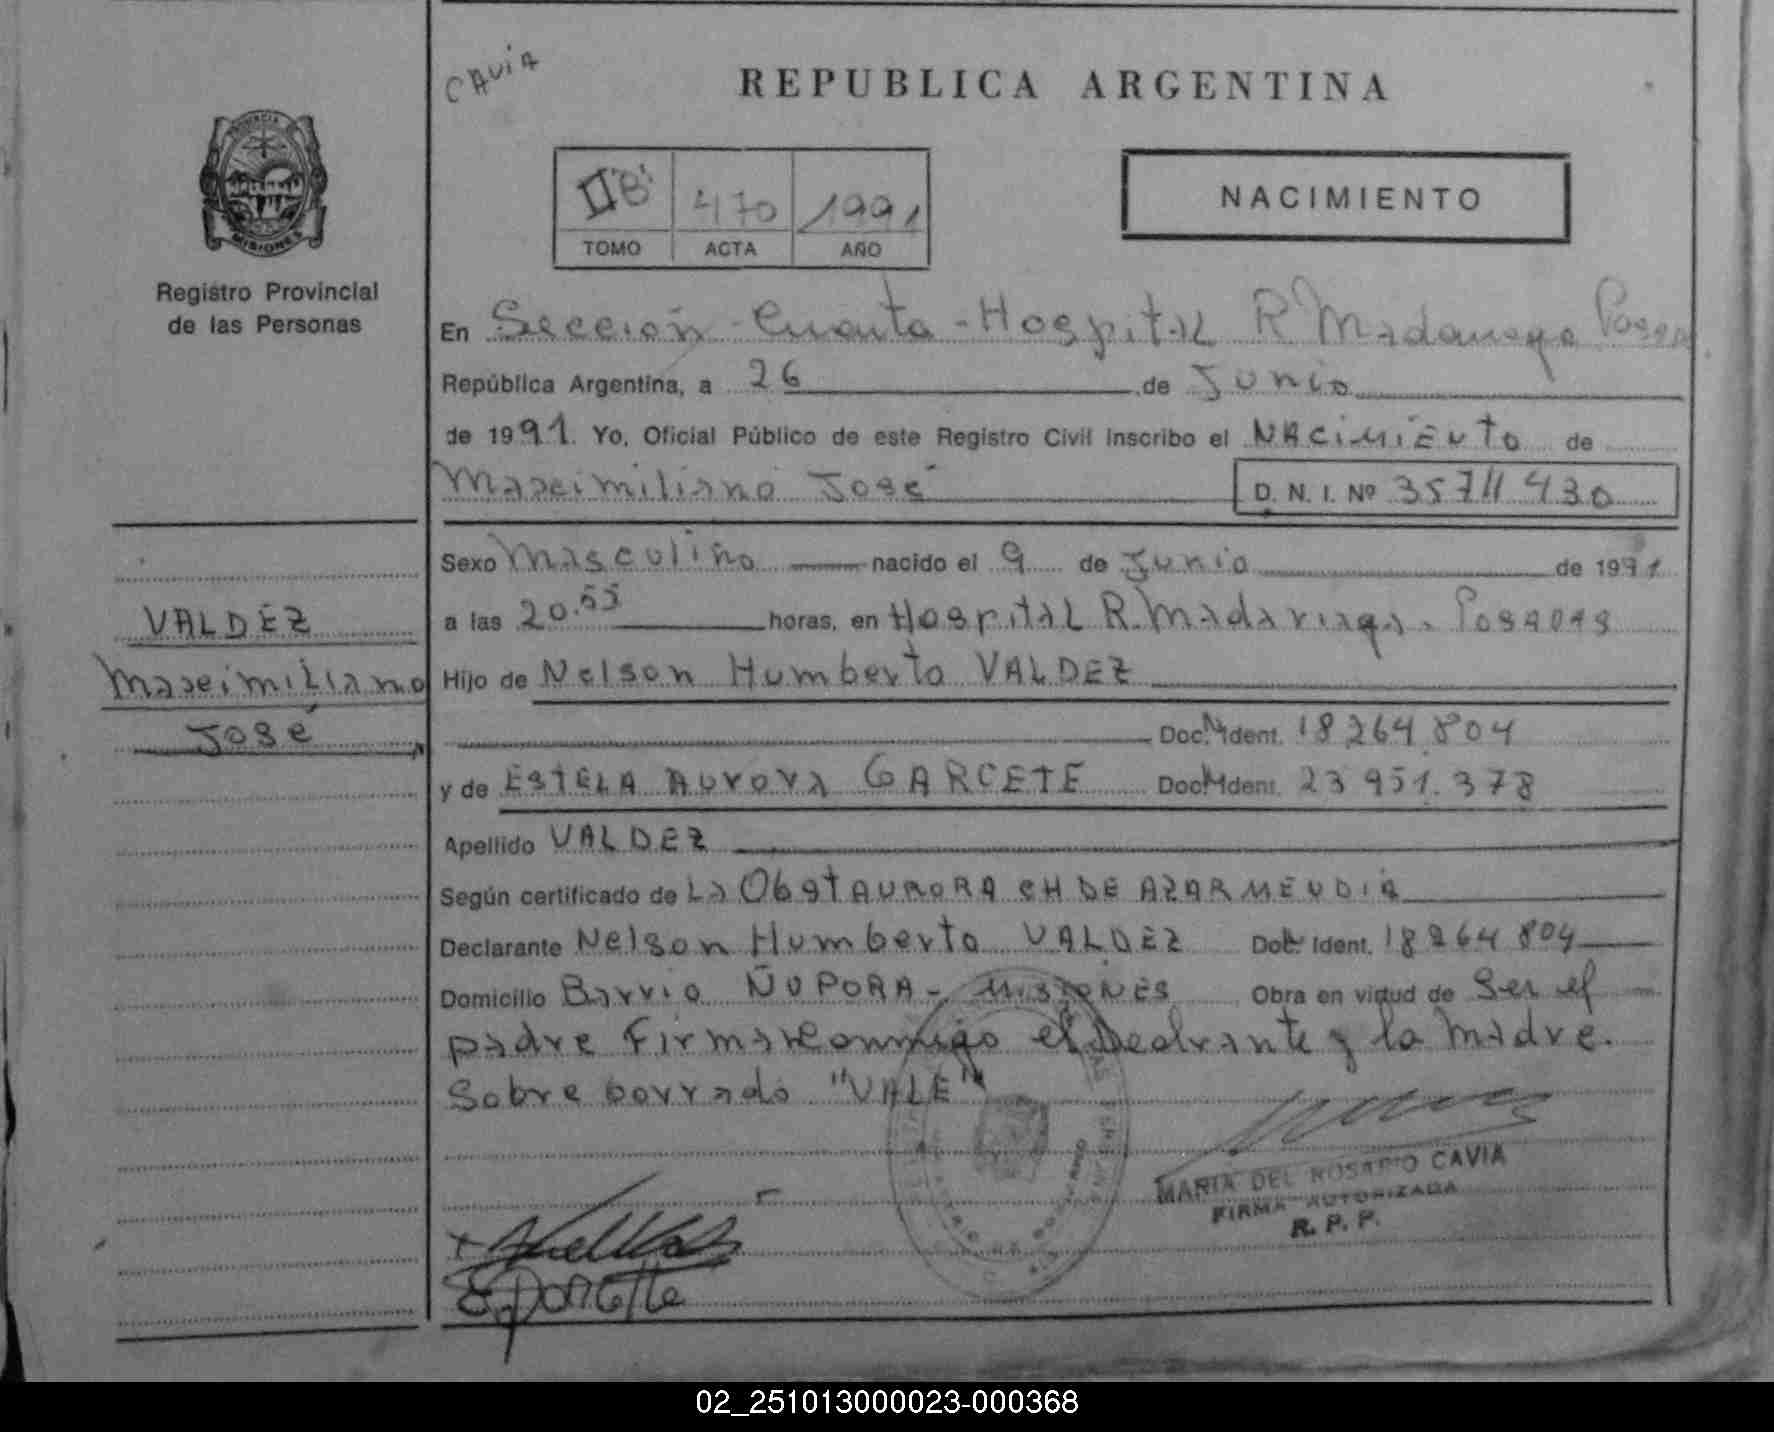 CAVIA
REPUBLICA ARGENTINA
II "B" 470 1991
TOMO ACTA AÑO
NACIMIENTO
PROVINCIA
MISIONES
Registro Provincial
de las Personas
En Sección Cuarta - Hospital R Madariaga
República Argentina, a 26 de Junio
de 1991. Yo, Oficial Público de este Registro Civil inscribo el NACIMIENTO de
Maximiliano José D. N. I. Nº 35711430
Sexo Masculino nacido el 9 de Junio de 1991
a las 20.55 horas, en Hospital R. Madariaga. Posadas
Hijo de Nelson Humberto VALDEZ
Doc. Ident. 18264804
y de ESTELA AURORA GARCETE Doc. Ident. 23951.378
Apellido VALDEZ
Según certificado de La Obst AURORA CH DE AZARMENDIA
Declarante Nelson Humberto VALDEZ Doc. Ident. 18264804
Domicilio Barrio ÑUPORA - MISIONES Obra en virtud de Ser el
padre Firma conmigo el Declrante y la Madre.
Sobre borrado "VALE"
VALDEZ
Maximiliano
José
MARIA DEL ROSARIO CAVIA
FIRMA AUTORIZADA
R. P. P.
02_251013000023-000368